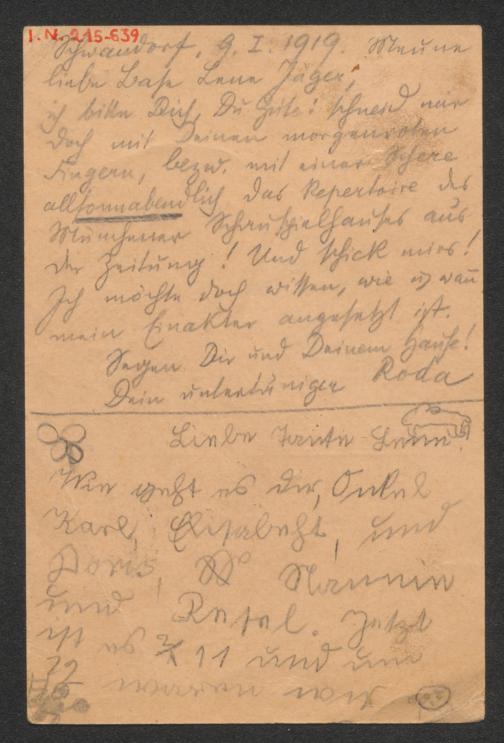 I.N. 215.639
Schwandorf, 9. I. 1919. Meine
liebe Base Lene Jäger,
ich bitte Dich, Du Gute! schneid mir
doch mit Deinen morgenroten
Fingern, bezw. mit einer Schere
allsonnabendlich das Repertoire des
Münchener Schauspielhauses aus
der Zeitung! Und schick mirs!
Ich möchte doch wissen, wie u wan̅
mein Einakter angesetzt ist.
Segen Dir und Deinem Hause!
Dein untertäniger Roda
Liebe Tante Lene.
Wie geht es dir, Onkel
Karl, Elisabeht, und
Doris, Mammie
und Resel. Jetzt
ist es 11 und um
12 waren wir